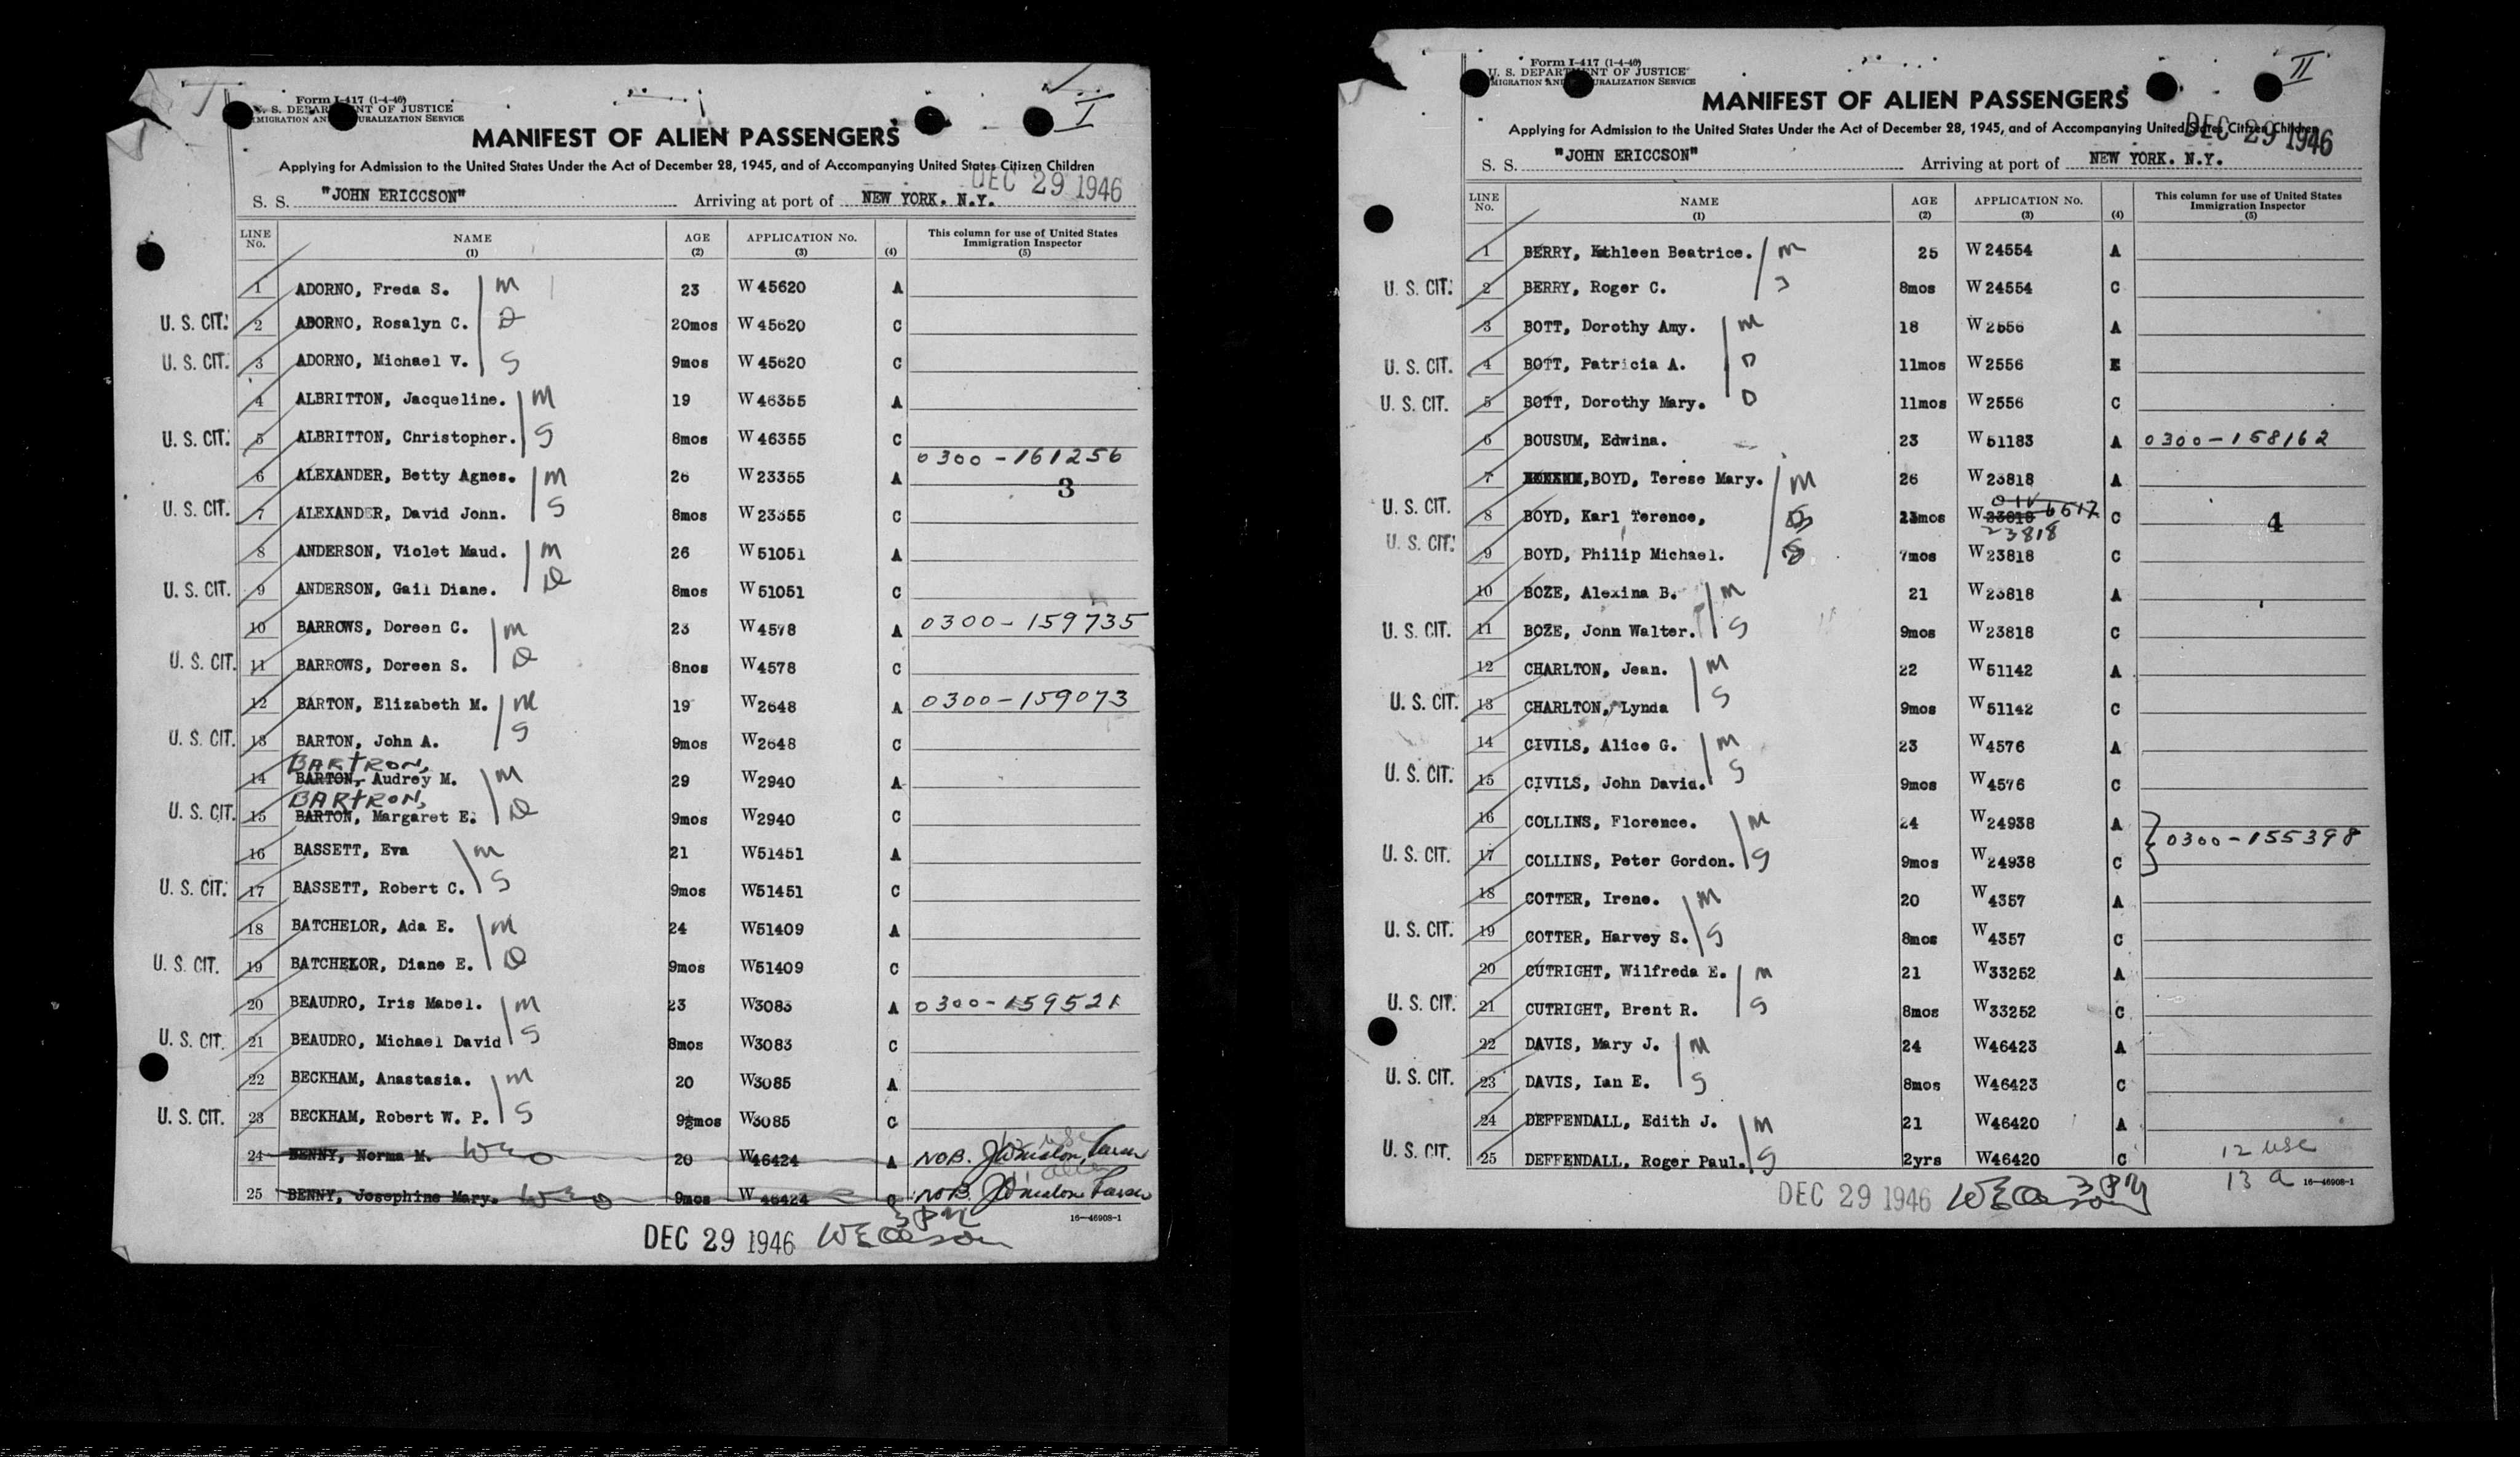 I
Form I-417 (1-4-46)
U. S. DEPARTMENT OF JUSTICE
IMMIGRATION AND NATURALIZATION SERVICE
MANIFEST OF ALIEN PASSENGERS
Applying for Admission to the United States Under the Act of December 28, 1945, and of Accompanying United States Citizen Children
DEC 29 1946
S. S. "JOHN ERICCSON" Arriving at port of NEW YORK. N.Y.
LINE No. NAME (1) AGE (2) APPLICATION No. (3) (4) This column for use of United States Immigration Inspector (5)
1 ADORNO, Freda S. M 23 W 45620 A
U. S. CIT. 2 ADORNO, Rosalyn C. D 20mos W 45620 C
U. S. CIT. 3 ADORNO, Michael V. S 9mos W 45620 C
4 ALBRITTON, Jacqueline. M 19 W 46355 A
U. S. CIT. 5 ALBRITTON, Christopher. S 8mos W 46355 C
6 ALEXANDER, Betty Agnes. M 26 W 23355 A 0300-161256
3
U. S. CIT. 7 ALEXANDER, David John. S 8mos W 23355 C
8 ANDERSON, Violet Maud. M 26 W 51051 A
U. S. CIT. 9 ANDERSON, Gail Diane. D 8mos W 51051 C
10 BARROWS, Doreen C. M 23 W 4578 A 0300-159735
U. S. CIT. 11 BARROWS, Doreen S. D 8nos W 4578 C
12 BARTON, Elizabeth M. M 19 W 2648 A 0300-159073
U. S. CIT. 13 BARTON, John A. S 9mos W 2648 C
BARTRON,
14 BARTON, Audrey M. M 29 W 2940 A
BARTRON,
U. S. CIT. 15 BARTON, Margaret E. D 9mos W 2940 C
16 BASSETT, Eva M 21 W51451 A
U. S. CIT. 17 BASSETT, Robert C. S 9mos W51451 C
18 BATCHELOR, Ada E. M 24 W51409 A
U. S. CIT. 19 BATCHELOR, Diane E. D 9mos W51409 C
20 BEAUDRO, Iris Mabel. M 23 W3083 A 0300-159521
U. S. CIT. 21 BEAUDRO, Michael David S 8mos W3083 C
22 BECKHAM, Anastasia. M 20 W3085 A
U. S. CIT. 23 BECKHAM, Robert W. P. S 9mos W3085 C
24 BENNY, Norma M. WEO 20 W46424 A NOB.
25 BENNY, Josephine Mary. WEO 9mos W 46424 C NOB.
DEC 29 1946
16—46908-1
II
Form I-417 (1-4-46)
U. S. DEPARTMENT OF JUSTICE
IMMIGRATION AND NATURALIZATION SERVICE
MANIFEST OF ALIEN PASSENGERS
Applying for Admission to the United States Under the Act of December 28, 1945, and of Accompanying United States Citizen Children
DEC 29 1946
S. S. "JOHN ERICCSON" Arriving at port of NEW YORK. N.Y.
LINE No. NAME (1) AGE (2) APPLICATION No. (3) (4) This column for use of United States Immigration Inspector (5)
1 BERRY, Kathleen Beatrice. M 25 W 24554 A
U. S. CIT. 2 BERRY, Roger C. S 8mos W 24554 C
3 BOTT, Dorothy Amy. M 18 W 2556 A
U. S. CIT. 4 BOTT, Patricia A. D 11mos W 2556
U. S. CIT. 5 BOTT, Dorothy Mary. D 11mos W 2556 C
6 BOUSUM, Edwina. 23 W 51183 A 0300-158162
7 BOYD, Terese Mary. M 26 W 23818 A
U. S. CIT. 8 BOYD, Karl Terence, S 23mos W 23818 C 4
23818
U. S. CIT. 9 BOYD, Philip Michael. S 7mos W 23818 C
10 BOZE, Alexina B. M 21 W 23818 A
U. S. CIT. 11 BOZE, John Walter. S 9mos W 23818 C
12 CHARLTON, Jean. M 22 W 51142 A
U. S. CIT. 13 CHARLTON, Lynda S 9mos W 51142 C
14 CIVILS, Alice G. M 23 W 4576 A
U. S. CIT. 15 CIVILS, John David. S 9mos W 4576 C
16 COLLINS, Florence. M 24 W 24938 A
0300-155398
U. S. CIT. 17 COLLINS, Peter Gordon. S 9mos W 24938 C
18 COTTER, Irene. M 20 W 4357 A
U. S. CIT. 19 COTTER, Harvey S. S 8mos W 4357 C
20 CUTRIGHT, Wilfreda E. M 21 W33252 A
U. S. CIT. 21 CUTRIGHT, Brent R. S 8mos W33252 C
22 DAVIS, Mary J. M 24 W46423 A
U. S. CIT. 23 DAVIS, Ian E. S 8mos W46423 C
24 DEFFENDALL, Edith J. M 21 W46420 A
U. S. CIT. 25 DEFFENDALL, Roger Paul. S 2yrs W46420 C 12 usc
DEC 29 1946
13 a 16—46908-1